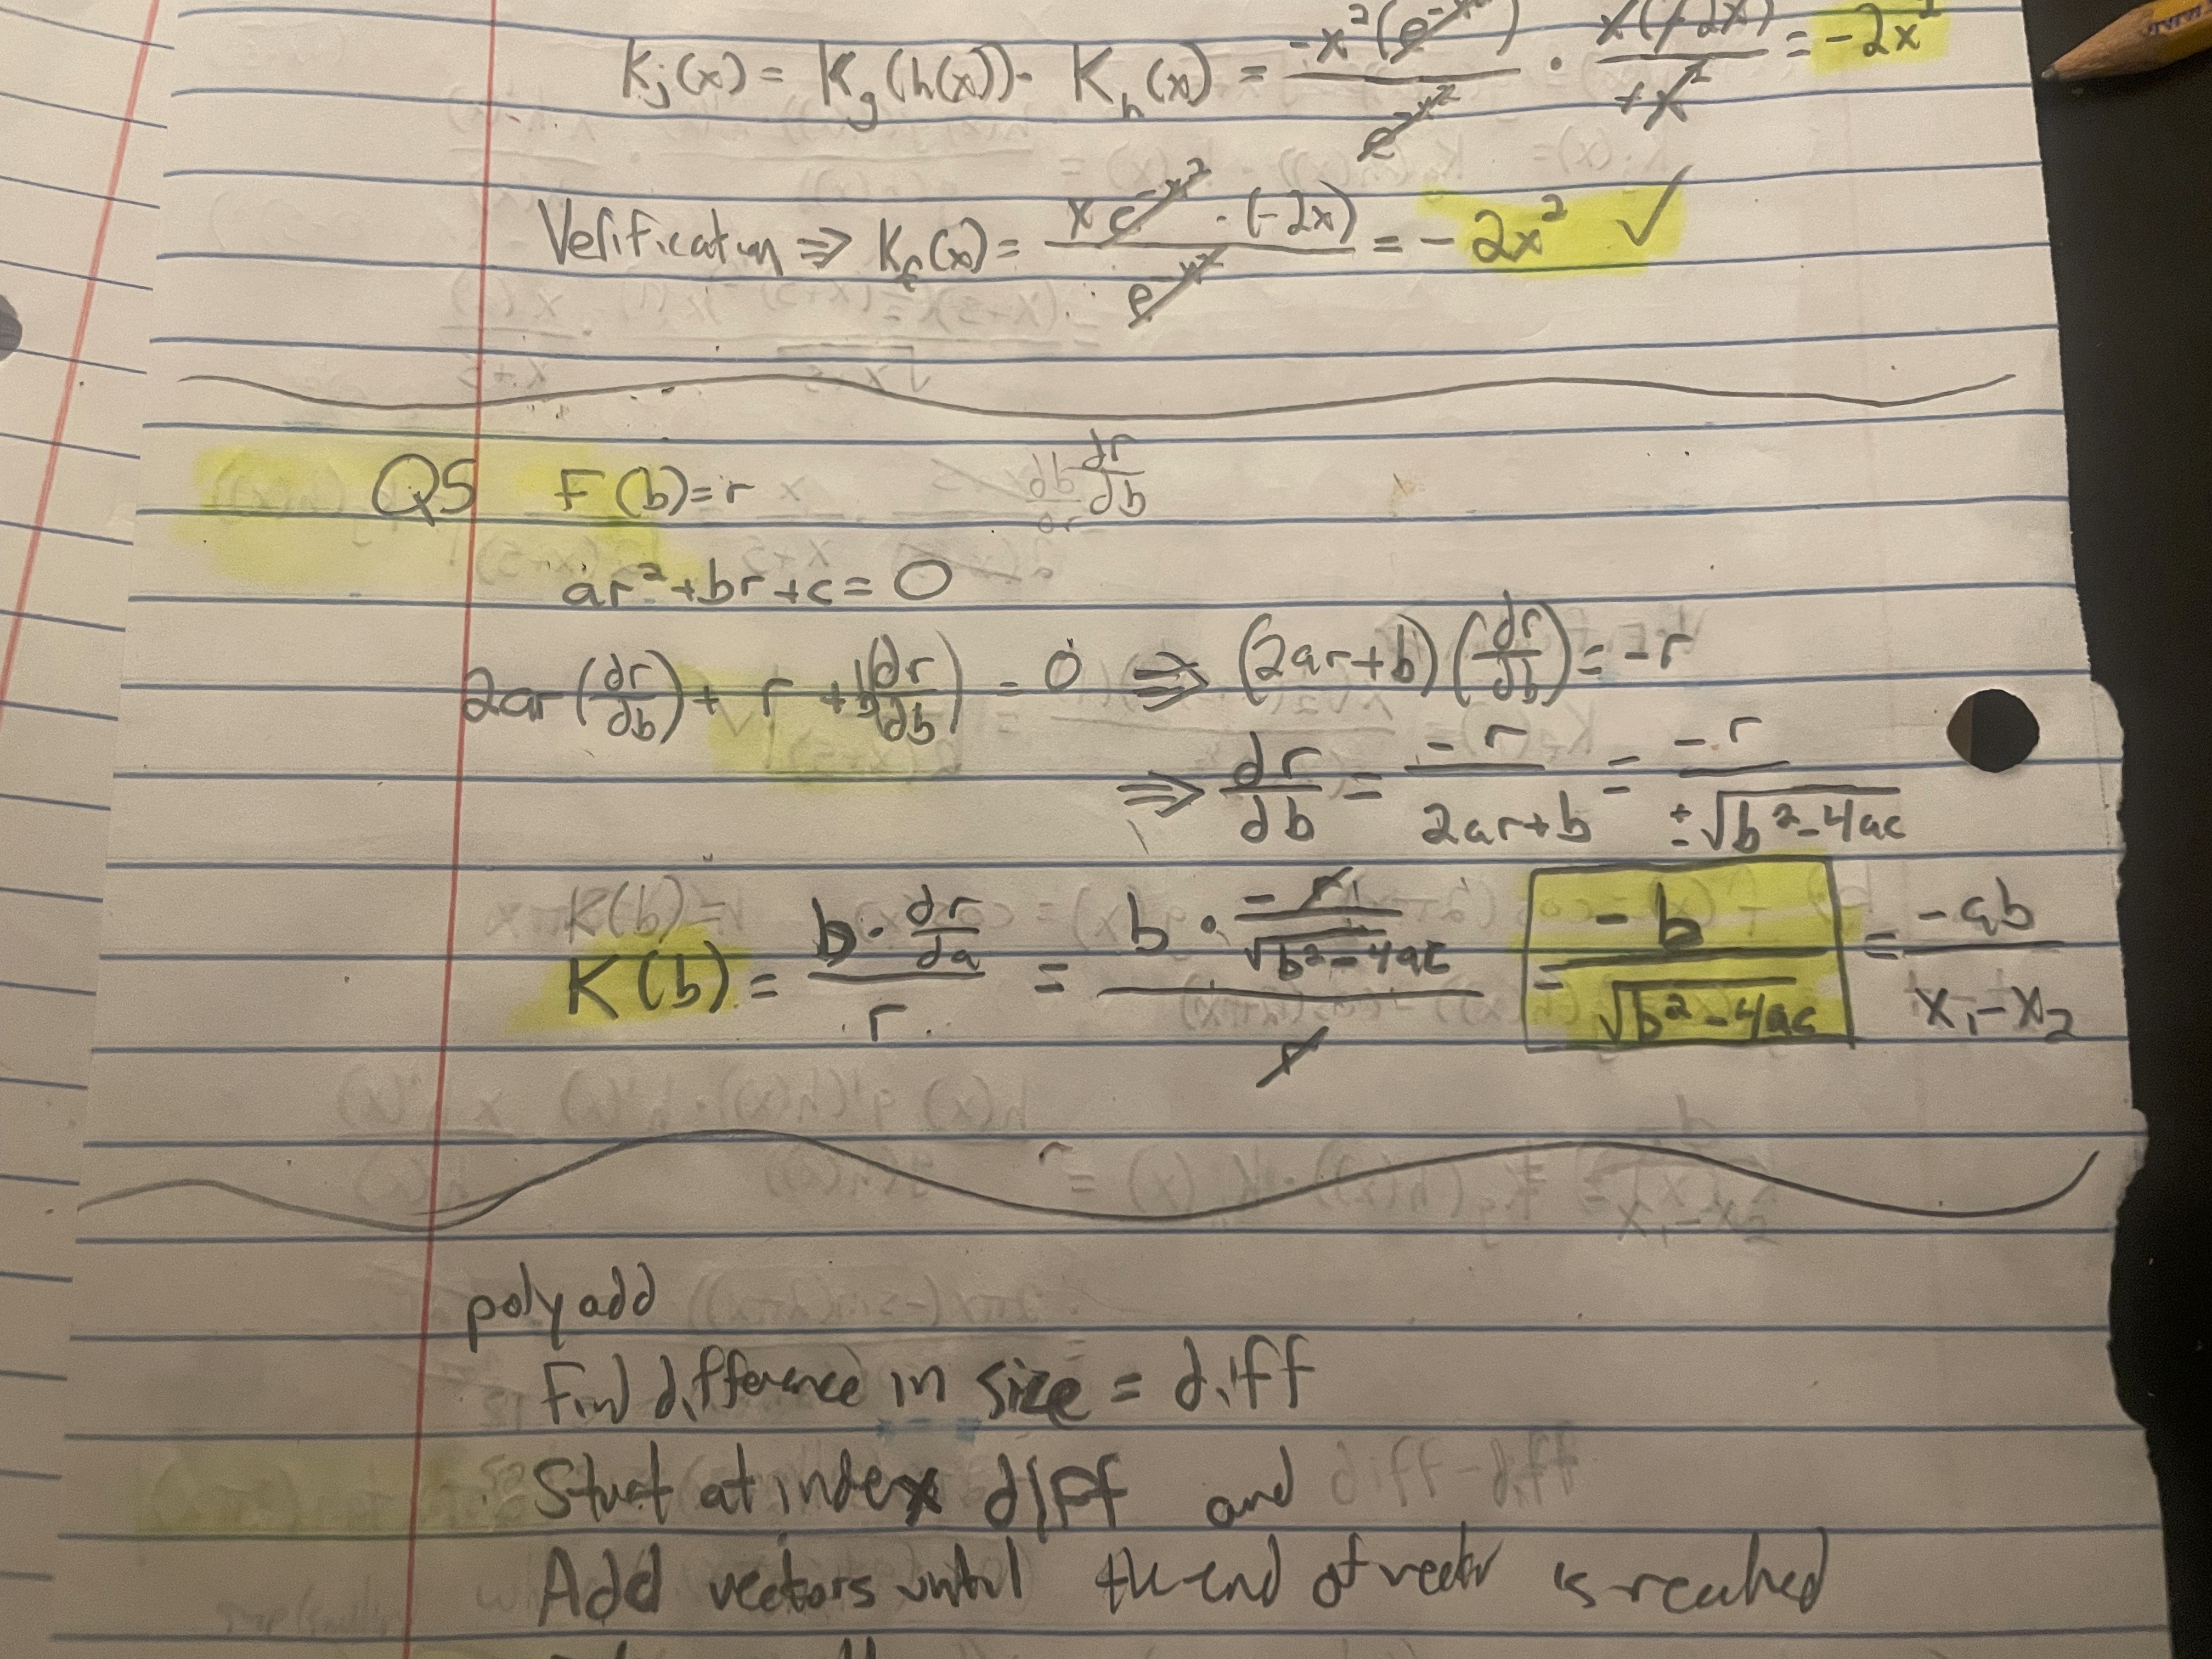 Kj(x) = Kg(h(x)) · Kh(x) = -x²(e^-x²) / e^-x² · x(-2x) / +x² = -2x²
Verification ⇒ Kf(x) = x e^-x² · (-2x) / e^-x² = -2x² ✓
Q5 F(b)=r dr/db
ar²+br+c=0
2ar(dr/db) + r + b(dr/db) = 0 ⇒ (2ar+b)(dr/db) = -r
⇒ dr/db = -r / 2ar+b = -r / ±√b²-4ac
K(b) = b · dr/da / r = b · -r / √b²-4ac / r = -b / √b²-4ac = -ab / x₁-x₂
polyadd
Find difference in size = diff
Start at index diff and
Add vectors until the end of vector is reached